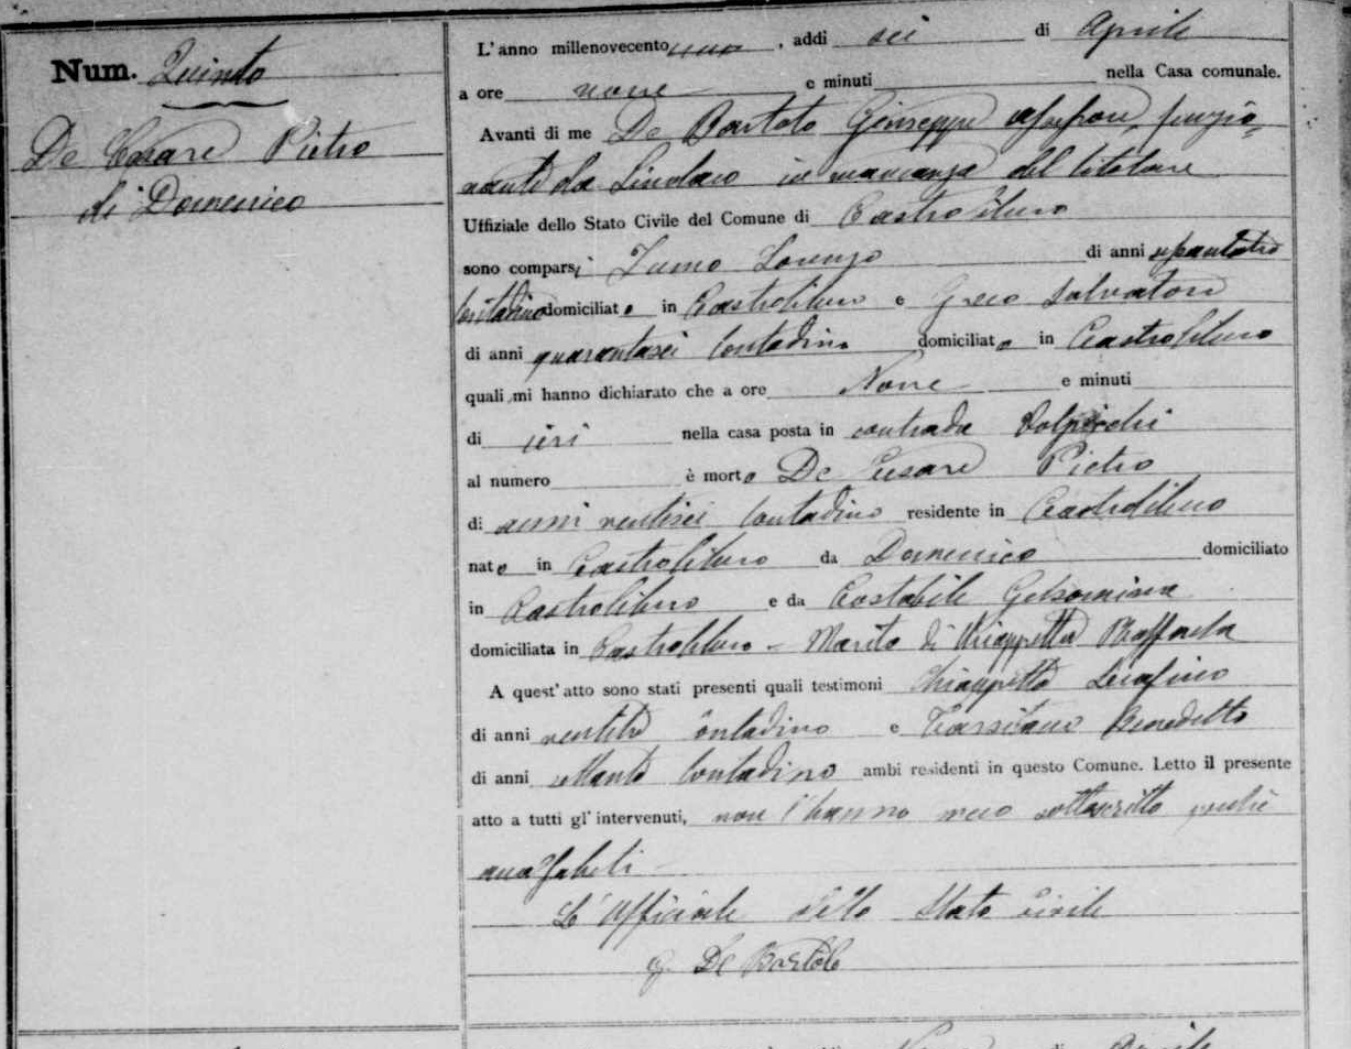 Num. Quinto
De Cesare Pietro
di Domenico
L'anno millenovecento uno, addi sei di Aprile
a ore nove e minuti nella Casa comunale.
Avanti di me De Bartolo Giuseppe assessore, funzio-
nante da Sindaco in mancanza del titolare
Uffiziale dello Stato Civile del Comune di Castrolibero
sono comparsi Zumo Lorenzo di anni
Contadino domiciliato in Castrolibero e Greco Salvatore
di anni quarantasei Contadino domiciliato in Castrolibero
quali mi hanno dichiarato che a ore Nove e minuti
di ieri nella casa posta in contrada
al numero è morto De Cesare Pietro
di anni ventisei Contadino residente in Castrolibero
nato in Castrolibero da Domenico domiciliato
in Castrolibero e da Costabile Gelsomina
domiciliata in Castrolibero - Marito di Chiappetta Raffaela
A quest'atto sono stati presenti quali testimoni Chiappetta Serafino
di anni ventitre contadino e Tarsitano Benedetto
di anni Contadino ambi residenti in questo Comune. Letto il presente
atto a tutti gl'intervenuti, non l'hanno meco sottoscritto perchè
analfabeti
L'Ufficiale dello Stato Civile
G. De Bartolo